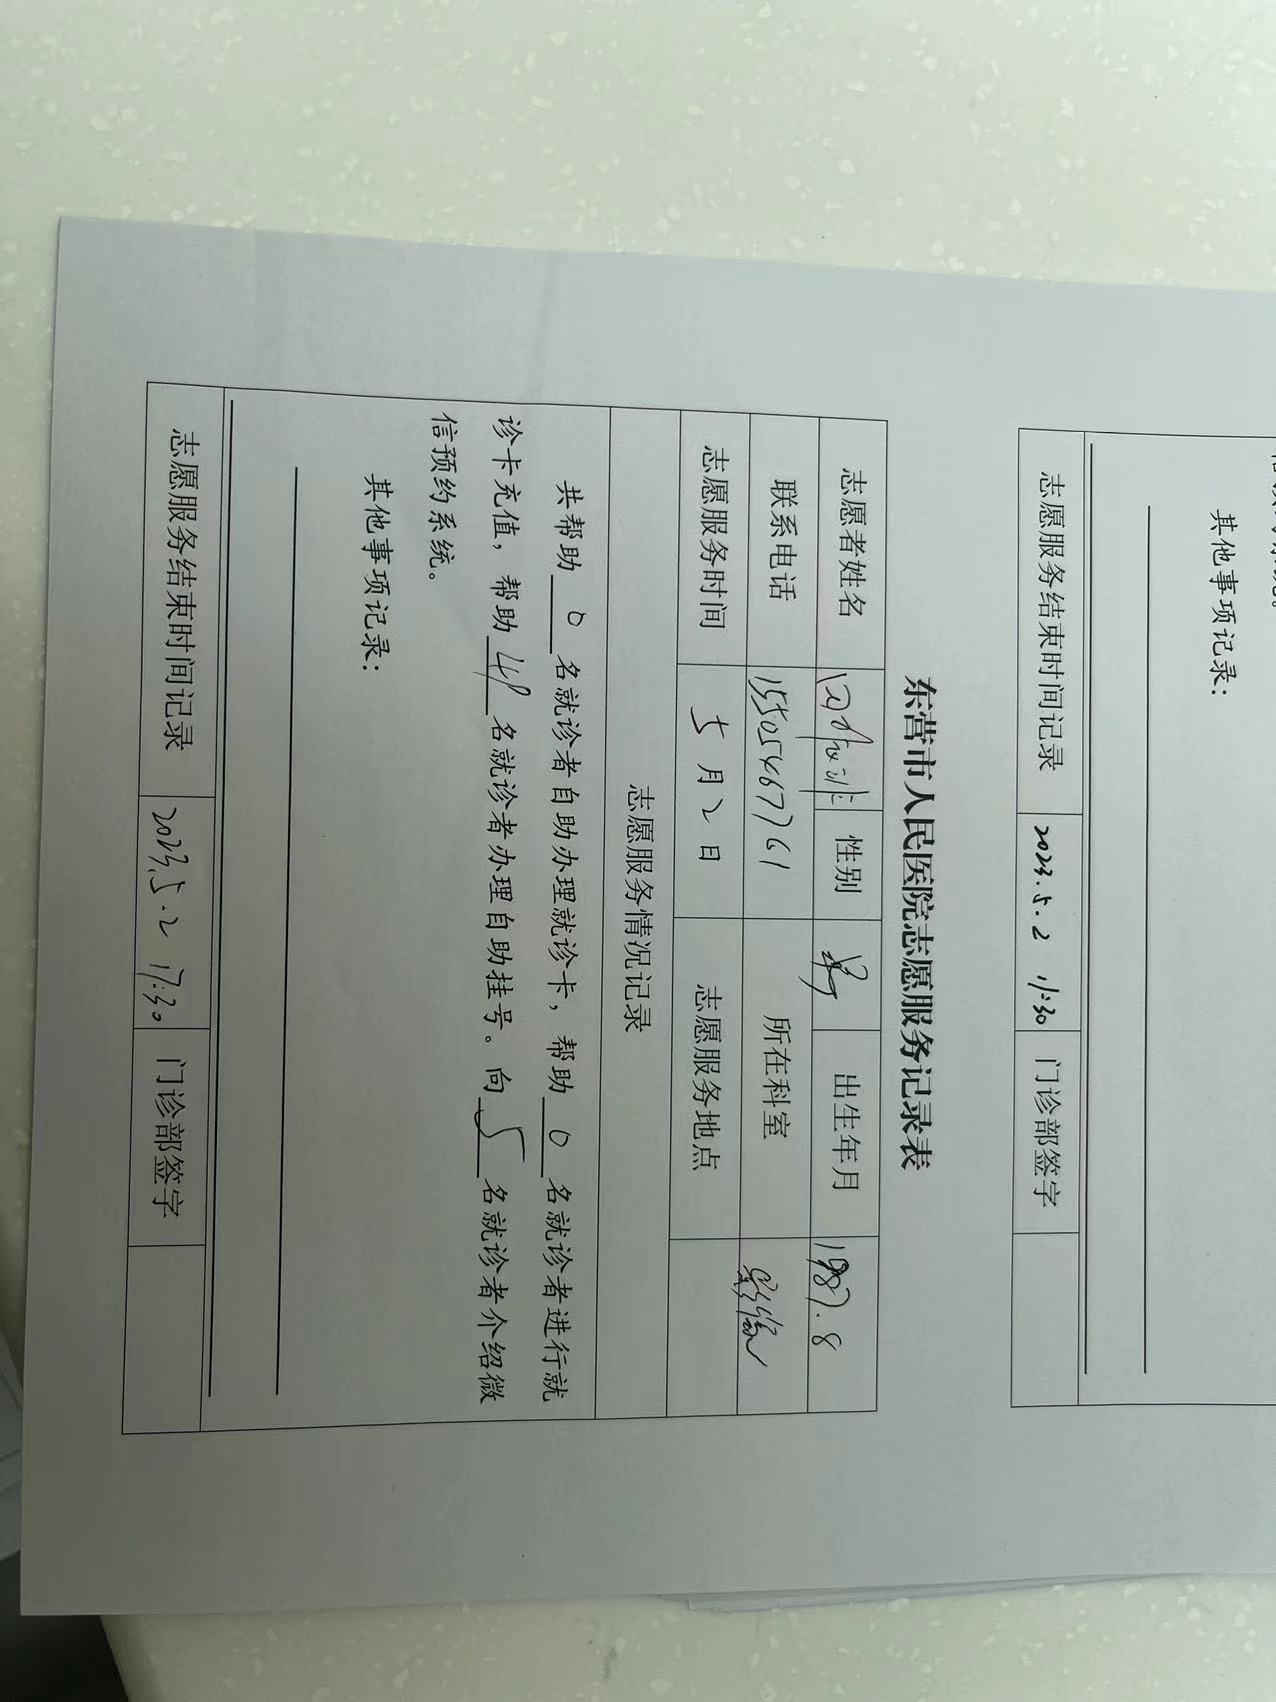 其他事项记录：
志愿服务结束时间记录 2023.5.2 11:30 门诊部签字
东营市人民医院志愿服务记录表
志愿者姓名 性别 男 出生年月 1987.8
联系电话 15505467761 所在科室 影像
志愿服务时间 5月2日 志愿服务地点
志愿服务情况记录
共帮助 0 名就诊者自助办理就诊卡，帮助 0 名就诊者进行就
诊卡充值，帮助 名就诊者办理自助挂号。向 5 名就诊者介绍微
信预约系统。
其他事项记录：
志愿服务结束时间记录 2023.5.2 17:30 门诊部签字